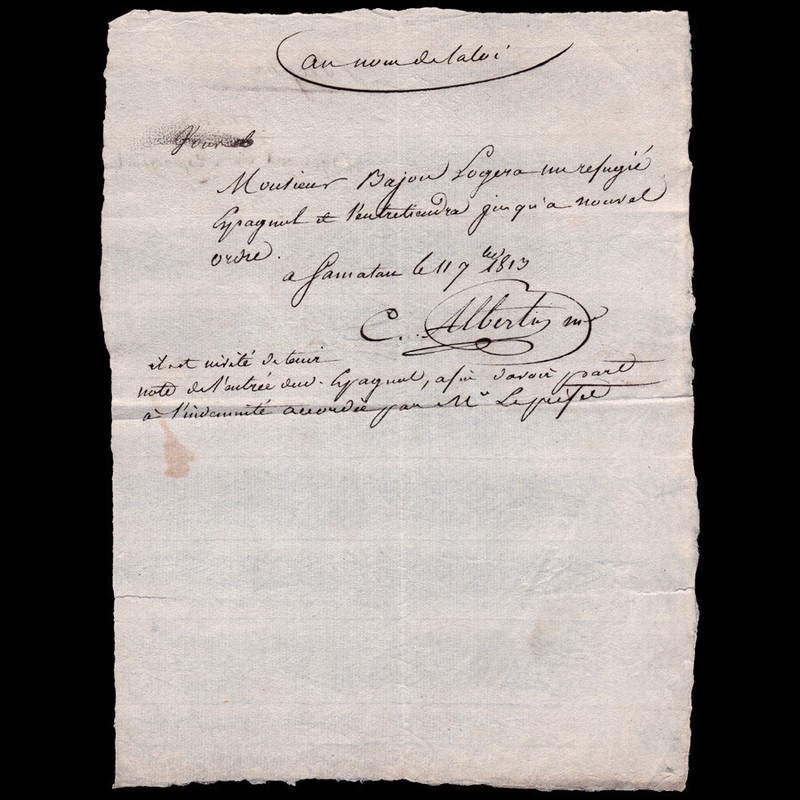 au nom de la loi
Monsieur Bajon Logera un refugié
Espagnol et l'entretiendra jusqu'a nouvel
ordre.
a Samatan le 11 7bre 1813
C. Albertin
il est invité de tenir
note de l'entrée dud. Espagnol, afin d'avoir part
a l'indemnité accordée par Mr Le préfet